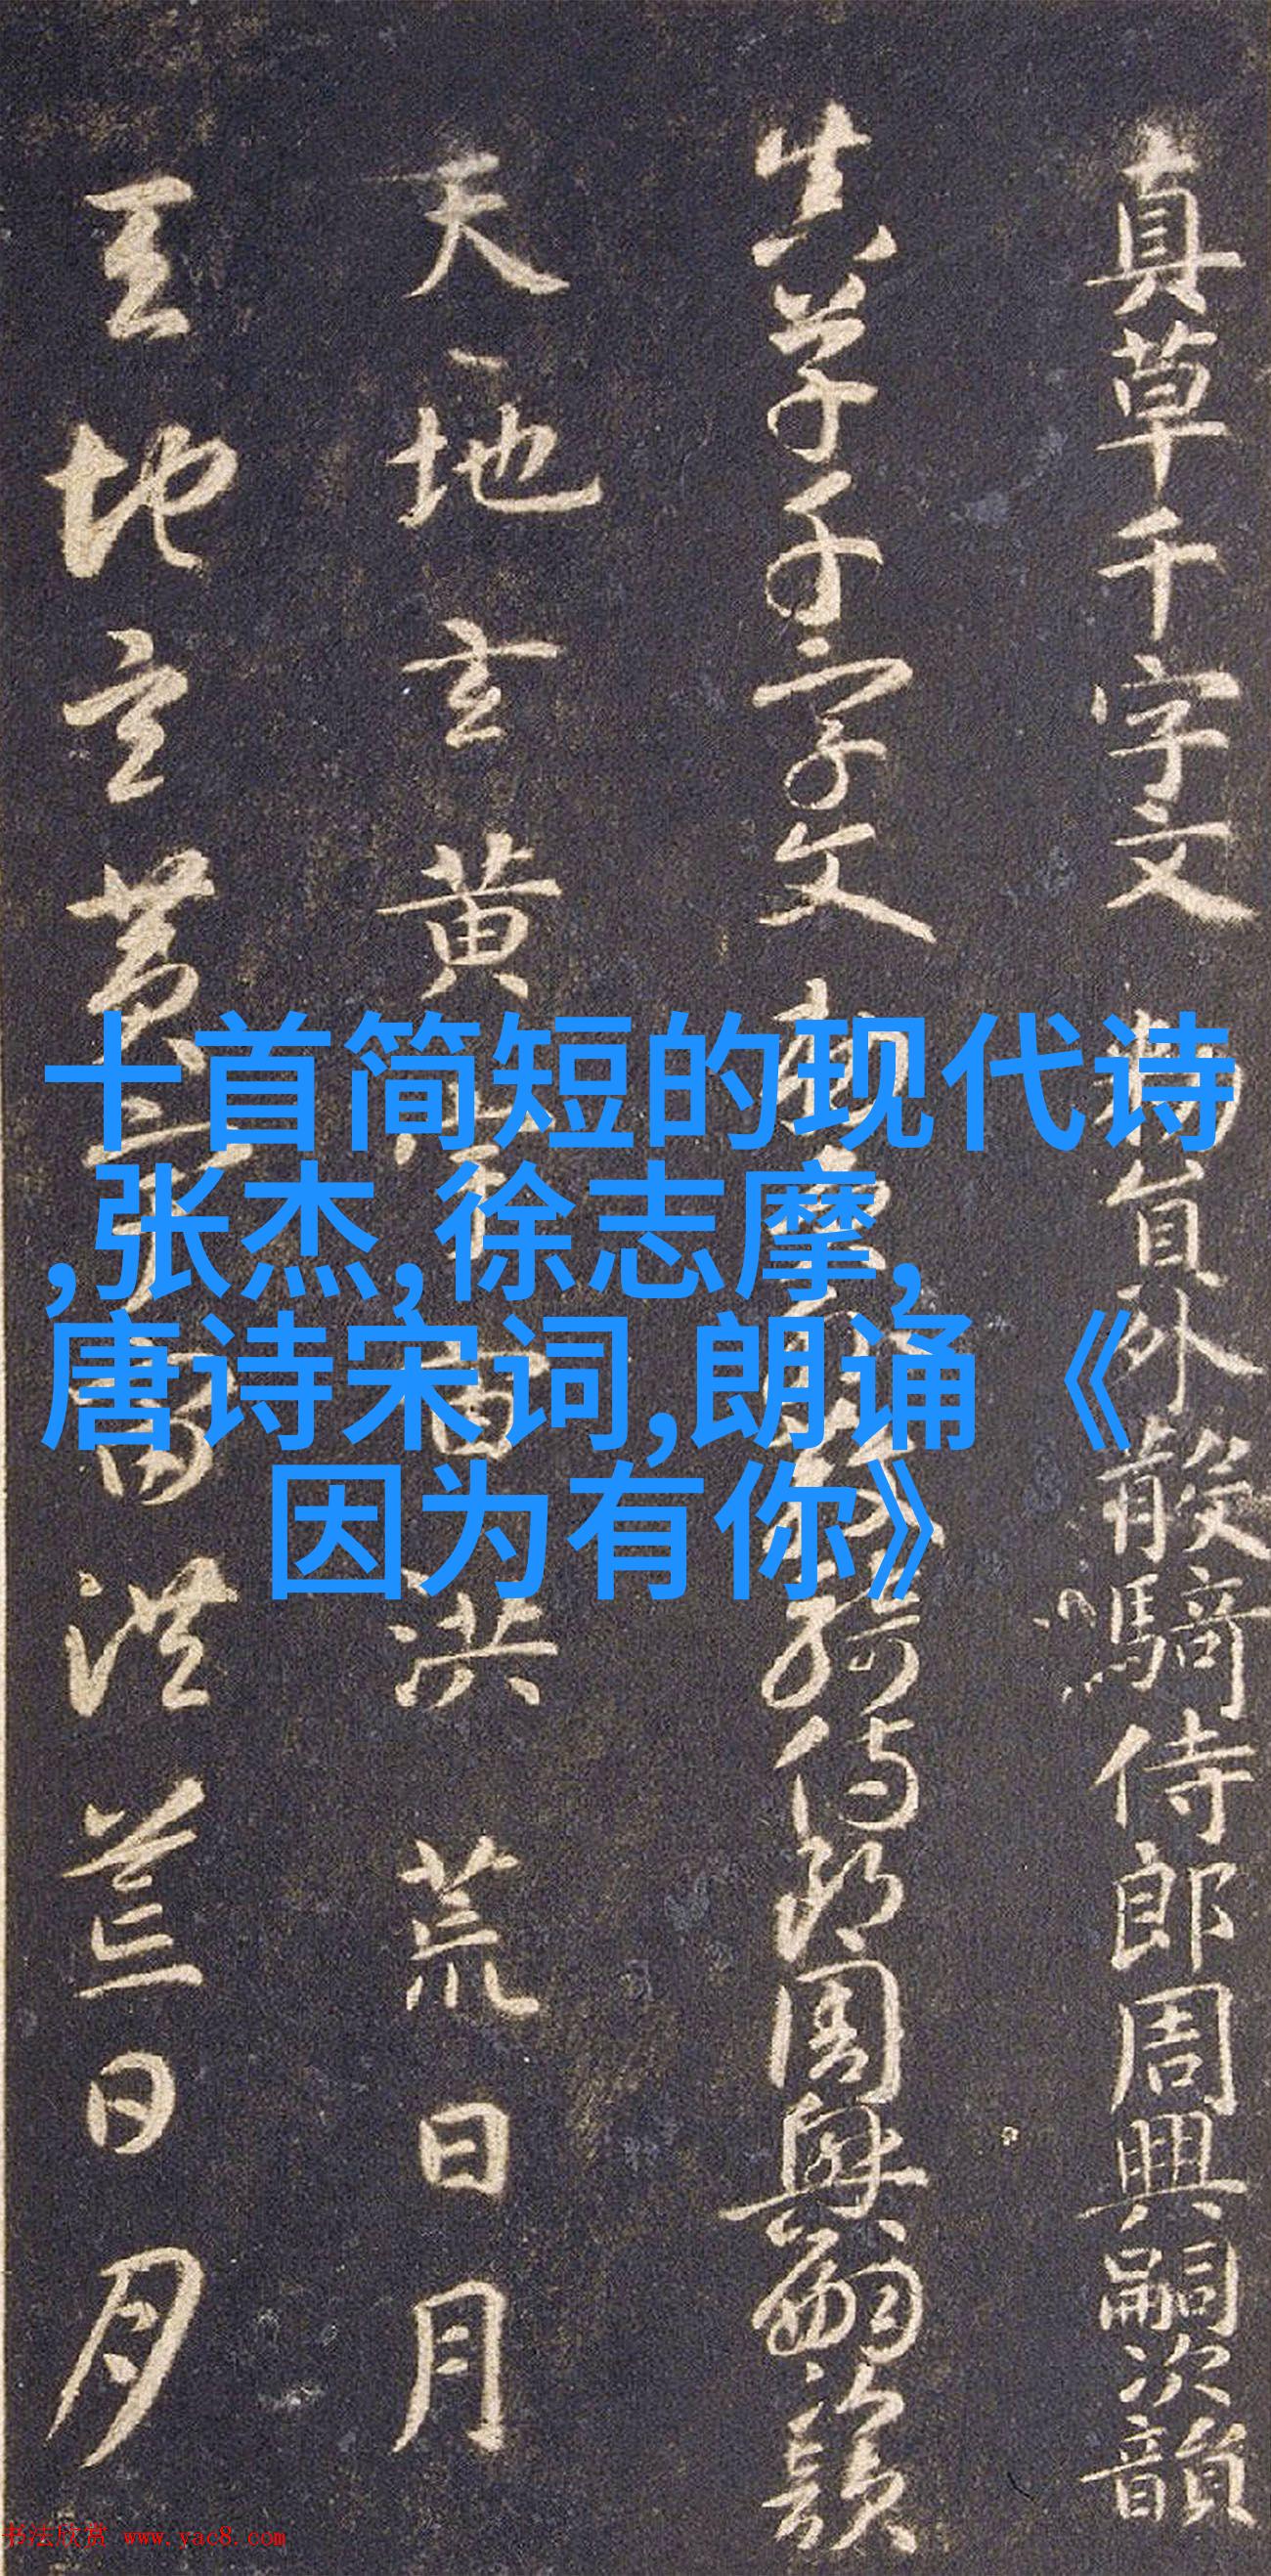 真草千字文 敕員外散騎侍郎周興嗣次韻
真草千字文 敕員外散騎侍郎周興嗣次韻
天地玄黃宇宙洪荒日月
天地玄黃宇宙洪荒日月
十首简短的现代诗
,张杰,徐志摩,
唐诗宋词,朗诵《
因为有你》
书法欣赏 www.yac8.com